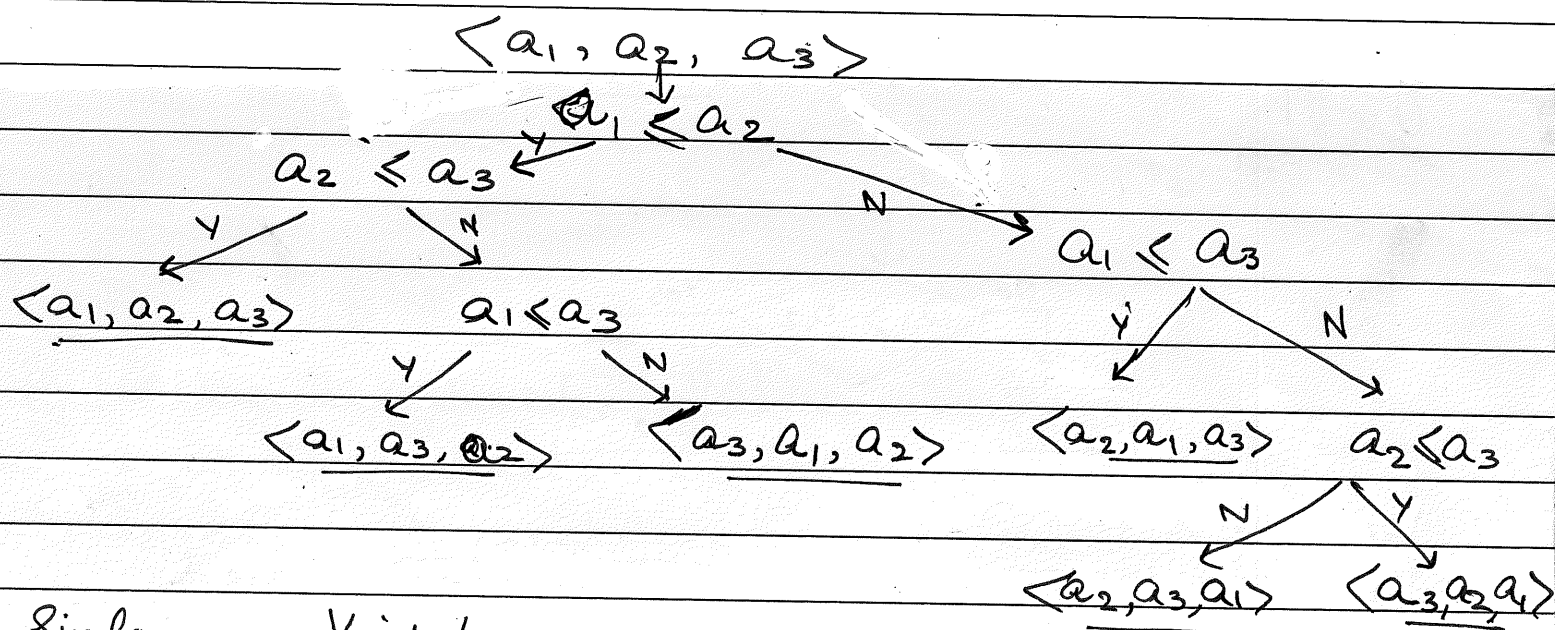 <a1, a2, a3>
a1 ≤ a2
Y
a2 ≤ a3
N
Y N
a1 ≤ a3
<a1, a2, a3> a1 ≤ a3
Y N
Y N
<a1, a3, a2> <a3, a1, a2> <a2, a1, a3> a2 ≤ a3
N Y
<a2, a3, a1> <a3, a2, a1>